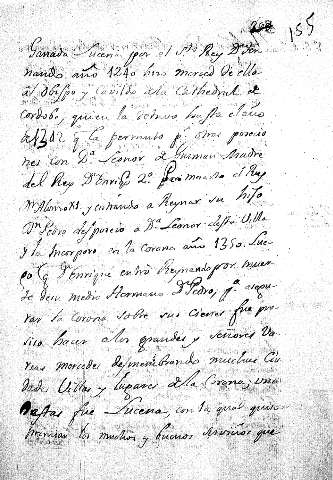 268 155
Ganada Lucena por el Sto Rey Dn Fer
nando año 1240 hizo merced de ella
al Obispo y Cavildo de la Cathedral de
Cordoba, quien la obtuvo hasta el año
de 1342 y la permuto pr otras porcio
nes con Da Leonor de Guzman Madre
del Rey Dn Enriqe 2o pero muerto el Rey
Dn Alonso XI. y entrando a Reynar su hijo
Dn Pedro desposeio a Da Leonor desta Villa
y la Incorporo en la Corona año 1350. Lue
go q Dn Enrique entro Reynando por muer
te de su medio Hermano Dn Pedro, pa asegu
rar la Corona sobre sus cienes fue pre
siso hacer a los grandes y señores Va
rias mercedes desmembrando muchas Ciu
dades Villas y lugares de la Corona; una
destas fue Lucena, con la qual quiso
premiar los muchos y buenos servicios que